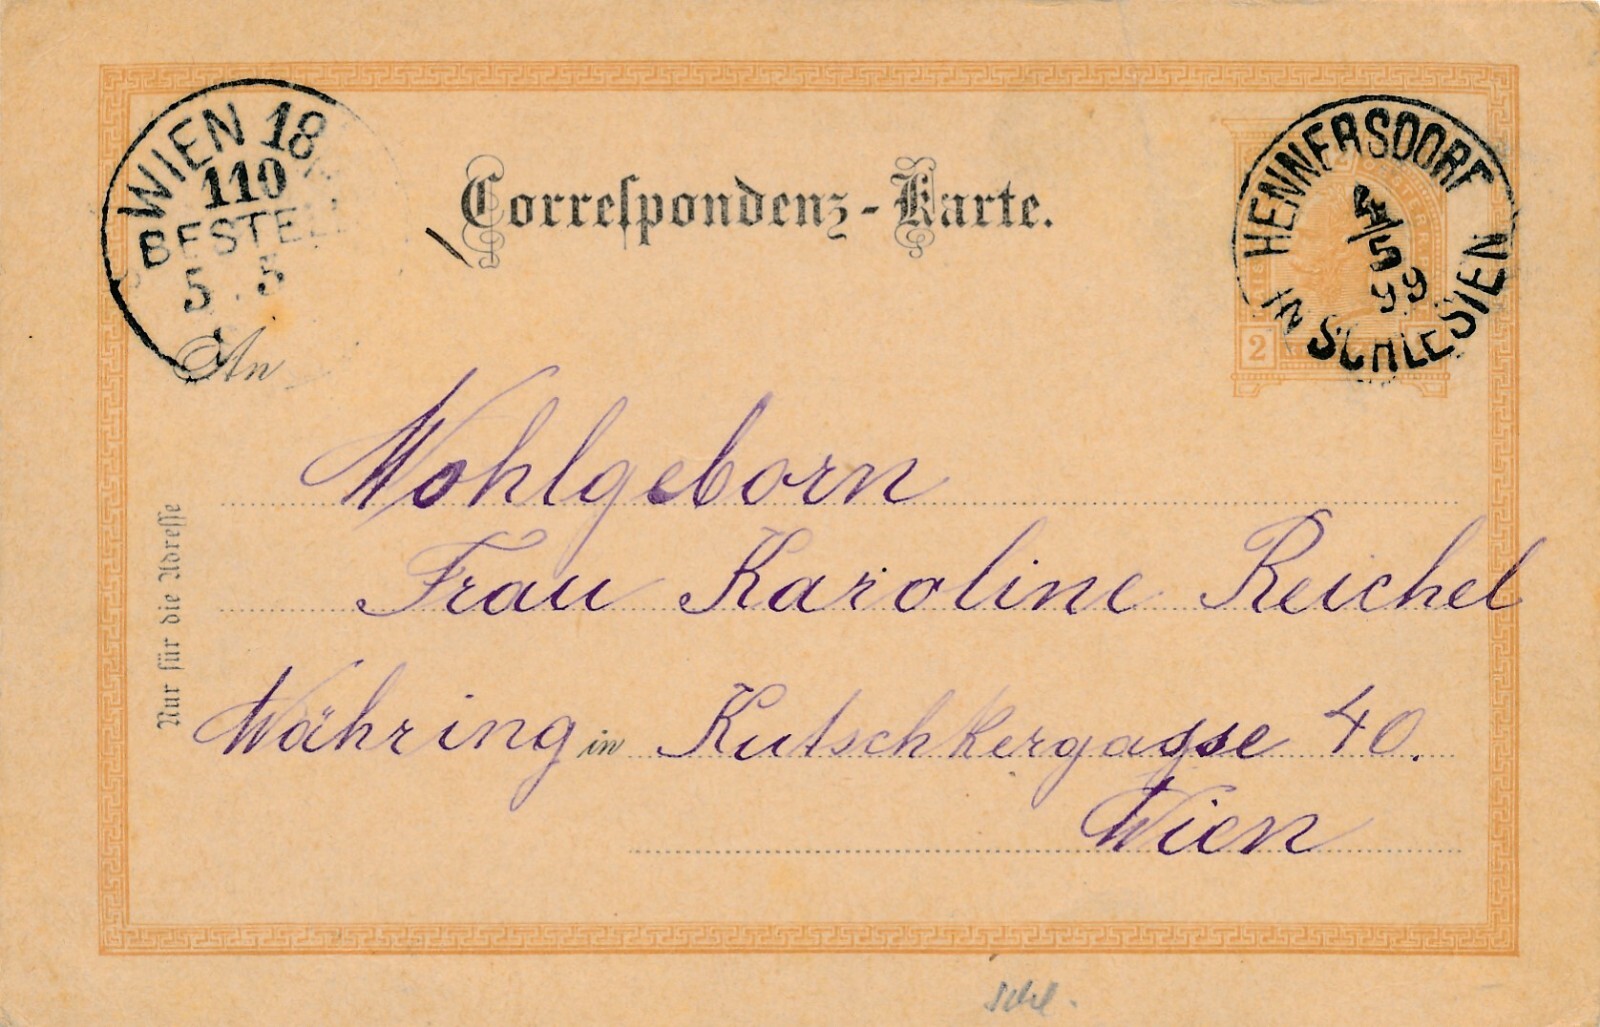 WIEN 18
110
BESTELL
5. 5
Correspondenz-Karte.
HENNERSDORF
IN SCHLESIEN
4/5
99
2
An
Wohlgeborn
Frau Karoline Reichel
Währing in Kutschkergasse 40.
Wien
Nur für die Adresse
Schl.